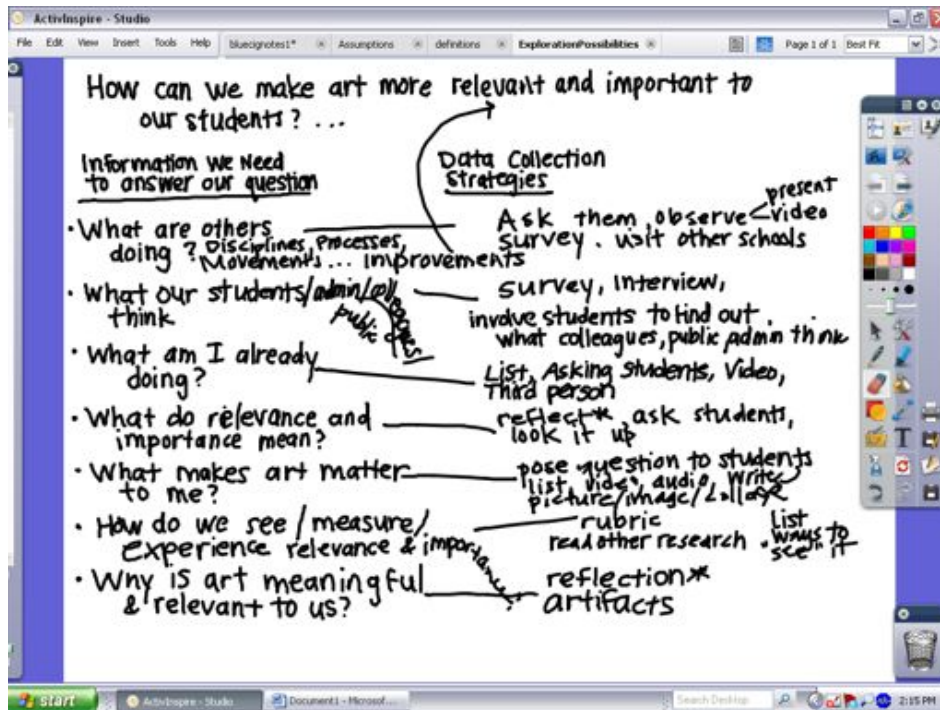 ActivInspire - Studio
File Edit View Insert Tools Help bluecignotes1* Assumptions definitions ExplorationPossibilities Page 1 of 1 Best Fit
How can we make art more relevant and important to
our students? ...
Information we Need
to answer our question
Data Collection
Strategies
• What are others
doing? Disciplines, Processes,
Movements... improvements
Ask them, observe present
video
survey. visit other schools
• What our students/admin/coll
public
think
survey, Interview,
involve students to find out
what colleagues, public, admin think
• What am I already
doing?
List, Asking students, Video,
Third person
• What do relevance and
importance mean?
reflect*, ask students,
look it up
• What makes art matter
to me?
pose question to students
list, video, audio, write
picture/image/collage
• How do we see/measure/
experience relevance & importance
rubric
read other research
• List
ways to
"see" it
• Why is art meaningful
& relevant to us?
reflection*
artifacts
start ActivInspire - Studio Document1 - Microsof... Search Desktop 2:15 PM